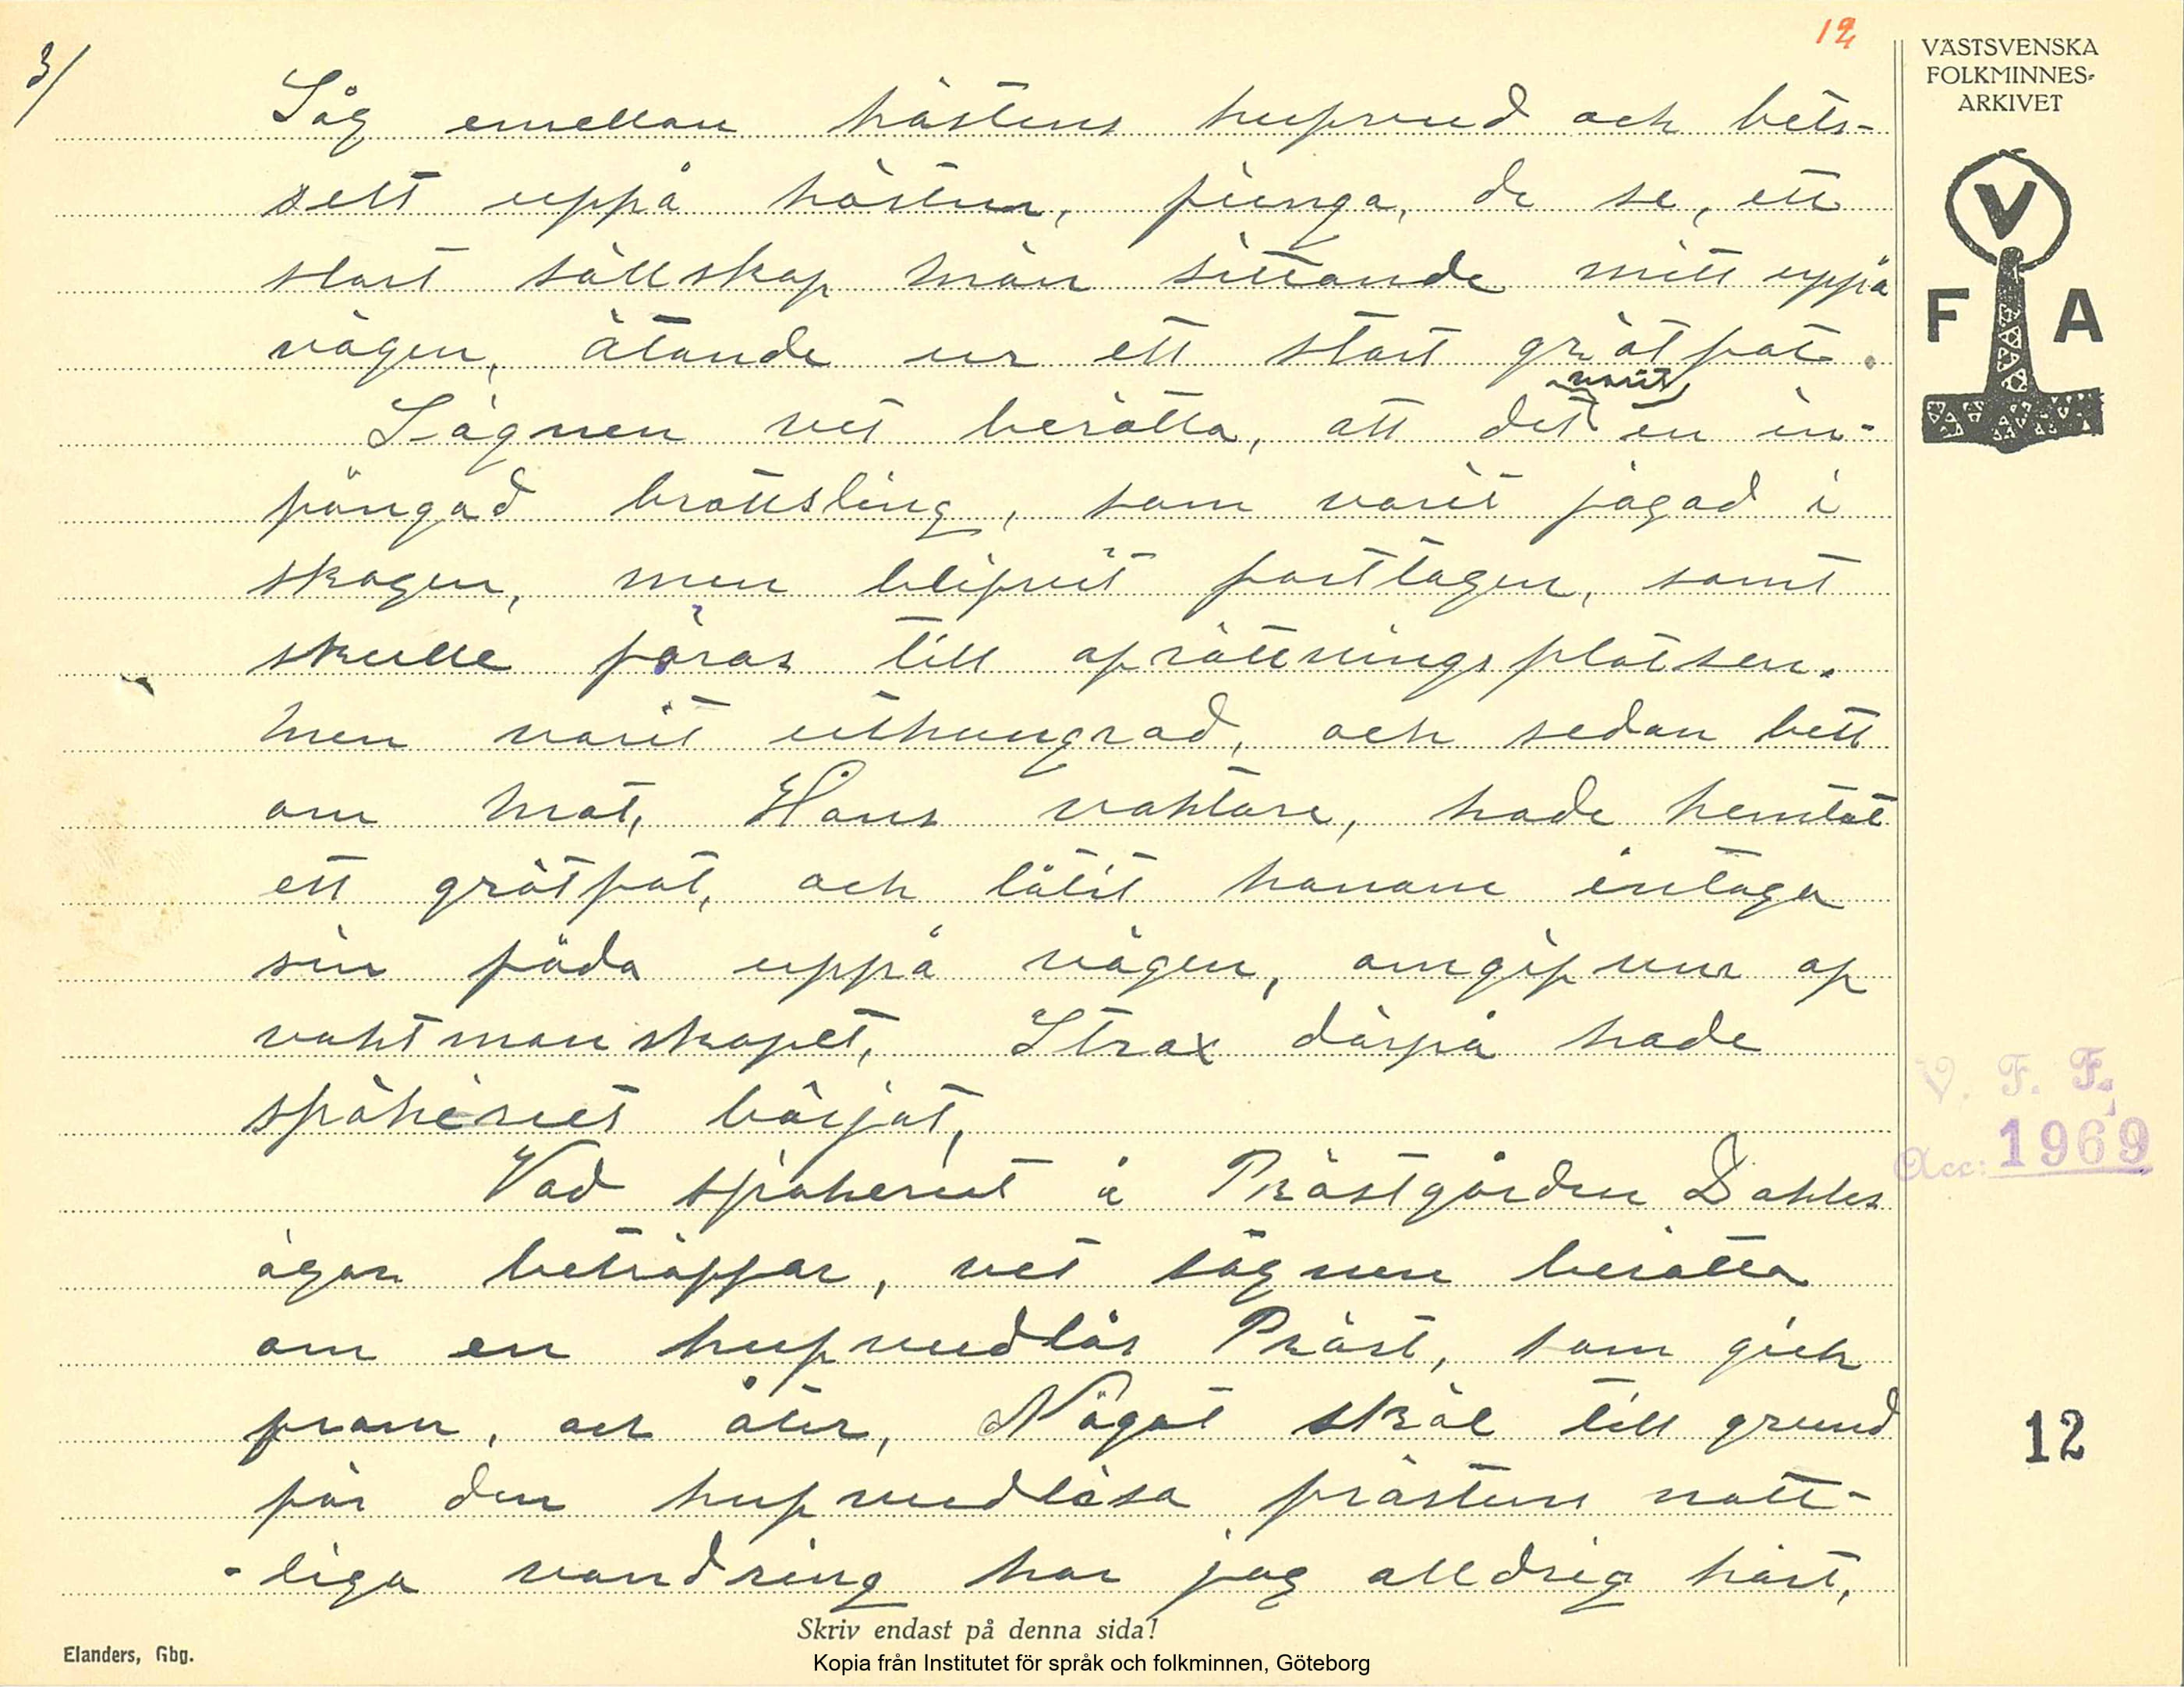 3/
12
VÄSTSVENSKA
FOLKMINNES-
ARKIVET
V
F A
Såg emellan hästens hufvud och bets-
selt uppå hästen, finga, de se, ett
stort sällskap män sittande mitt uppå
vägen, ätande ur ett stort grötfat.
Sägnen vet berätta, att det varit en in-
fångad brottsling, som varit jagad i
skogen, men blifvit fasttagen, samt
skulle föras till afrättningsplatsen.
Men varit uthungrad, och sedan bett
om mat, Hans vaktare, hade hemtat
ett grötfat, och låtit honom intaga
sin föda uppå vägen, omgifven af
vaktmanskapet, Strax därpå hade
spökeriet börjat,
Vad spökeriet å Prästgården Dahles
ägor beträffar, vet sägnen berätta
om en hufvudlös Präst, som gick
fram, och åter, Något skäl till grund
för den hufvudlösa prästens natt-
-liga vandring har jag alldrig hört,
V. F. F.
Acc: 1969
12
Skriv endast på denna sida!
Elanders, Gbg.
Kopia från Institutet för språk och folkminnen, Göteborg